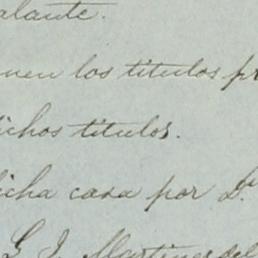 alante.
nen los titulos pr
ichos titulos.
icha casa por D.
G. J. Martinez del